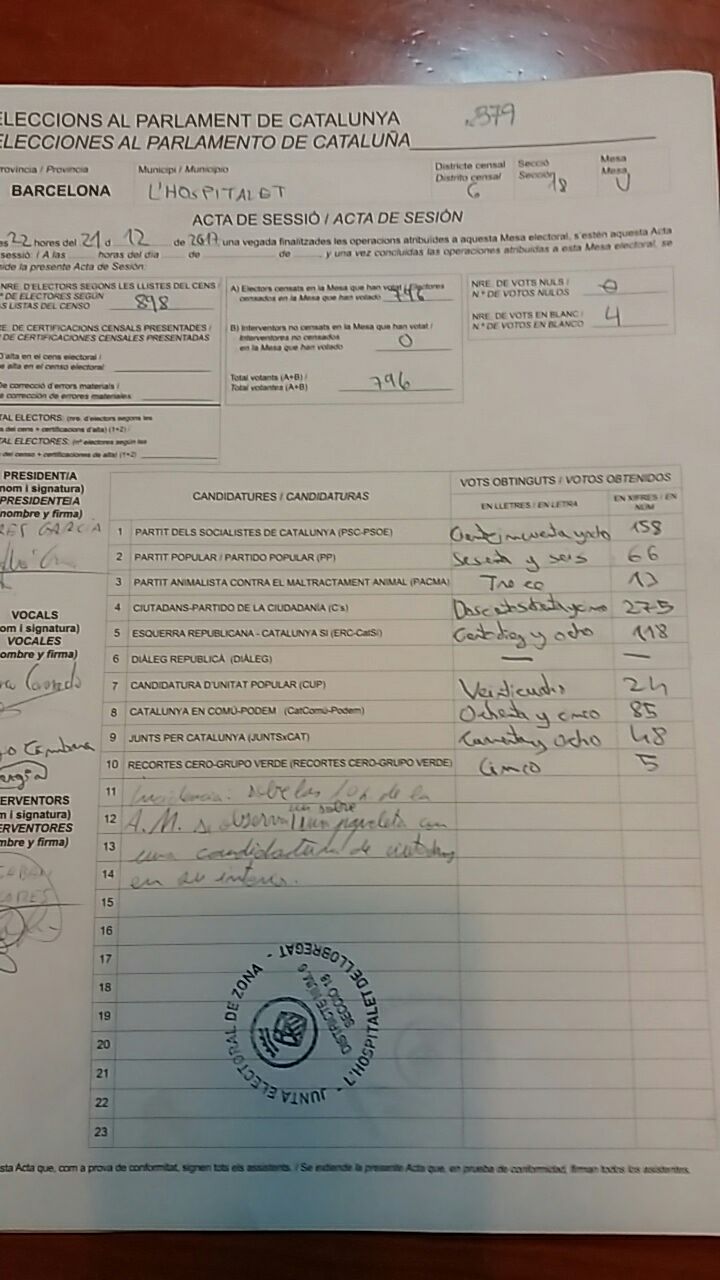 ELECCIONS AL PARLAMENT DE CATALUNYA
ELECCIONES AL PARLAMENTO DE CATALUÑA
379
Provincia / Provincia Municipi / Municipio Districte censal Secció Mesa
Distrito censal Sección Mesa
BARCELONA L'HOSPITALET 6 18 U
ACTA DE SESSIÓ / ACTA DE SESIÓN
22 hores del 21 d 12 de 2017 una vegada finalitzades les operacions atribuïdes a aquesta Mesa electoral, s'estén aquesta Acta
sessió: / A las horas del día de de y una vez concluidas las operaciones atribuidas a esta Mesa electoral, se
la presente Acta de Sesión:
NRE. D'ELECTORS SEGONS LES LLISTES DEL CENS /
º DE ELECTORES SEGÚN
LISTAS DEL CENSO 898
E. DE CERTIFICACIONS CENSALS PRESENTADES /
DE CERTIFICACIONES CENSALES PRESENTADAS
D'alta en el cens electoral /
alta en el censo electoral:
De correcció d'errors materials /
corrección de errores materiales:
TAL ELECTORS: (nre. d'electors segons les
del cens + certificacions d'alta) (1+2) /
TAL ELECTORES: (nº electores según las
del censo + certificaciones de alta) (1+2)
A) Electors censats en la Mesa que han votat / Electores
censados en la Mesa que han votado 796
B) Interventors no censats en la Mesa que han votat /
Interventores no censados
en la Mesa que han votado 0
Total votants (A+B) /
Total votantes (A+B) 796
NRE. DE VOTS NULS /
N.º DE VOTOS NULOS 0
NRE. DE VOTS EN BLANC /
N.º DE VOTOS EN BLANCO 4
PRESIDENT/A
nom i signatura)
PRESIDENTE/A
nombre y firma)
GARCIA
VOCALS
om i signatura)
VOCALES
ombre y firma)
ERVENTORS
m i signatura)
ERVENTORES
mbre y firma)
CANDIDATURES / CANDIDATURAS VOTS OBTINGUTS / VOTOS OBTENIDOS
EN LLETRES / EN LETRA EN XIFRES / EN NÚM
1 PARTIT DELS SOCIALISTES DE CATALUNYA (PSC-PSOE) 158
2 PARTIT POPULAR / PARTIDO POPULAR (PP) Sesenta y seis 66
3 PARTIT ANIMALISTA CONTRA EL MALTRACTAMENT ANIMAL (PACMA) Trece 13
4 CIUTADANS-PARTIDO DE LA CIUDADANÍA (C's) 275
5 ESQUERRA REPUBLICANA - CATALUNYA SÍ (ERC-CatSí) 118
6 DIÀLEG REPUBLICÀ (DIÀLEG) — —
7 CANDIDATURA D'UNITAT POPULAR (CUP) 24
8 CATALUNYA EN COMÚ-PODEM (CatComú-Podem) Ochenta y cinco 85
9 JUNTS PER CATALUNYA (JUNTSxCAT) 48
10 RECORTES CERO-GRUPO VERDE (RECORTES CERO-GRUPO VERDE) Cinco 5
11 Incidencia: sobre las 10h de la
12 A.M. se observa un sobre con
13 una candidatura de
14 en su interior.
15
16
17
18
19
20
21
22
23
JUNTA ELECTORAL DE ZONA - L'HOSPITALET DE LLOBREGAT -
DISTRICTE NÚM. 6
SECCIÓ 18
sta Acta que, com a prova de conformitat, signen tots els assistents. / Se extiende la presente Acta que, en prueba de conformidad, firman todos los asistentes.